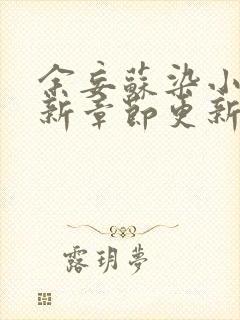 余妄蘇染小
新章節更新
露玥夢